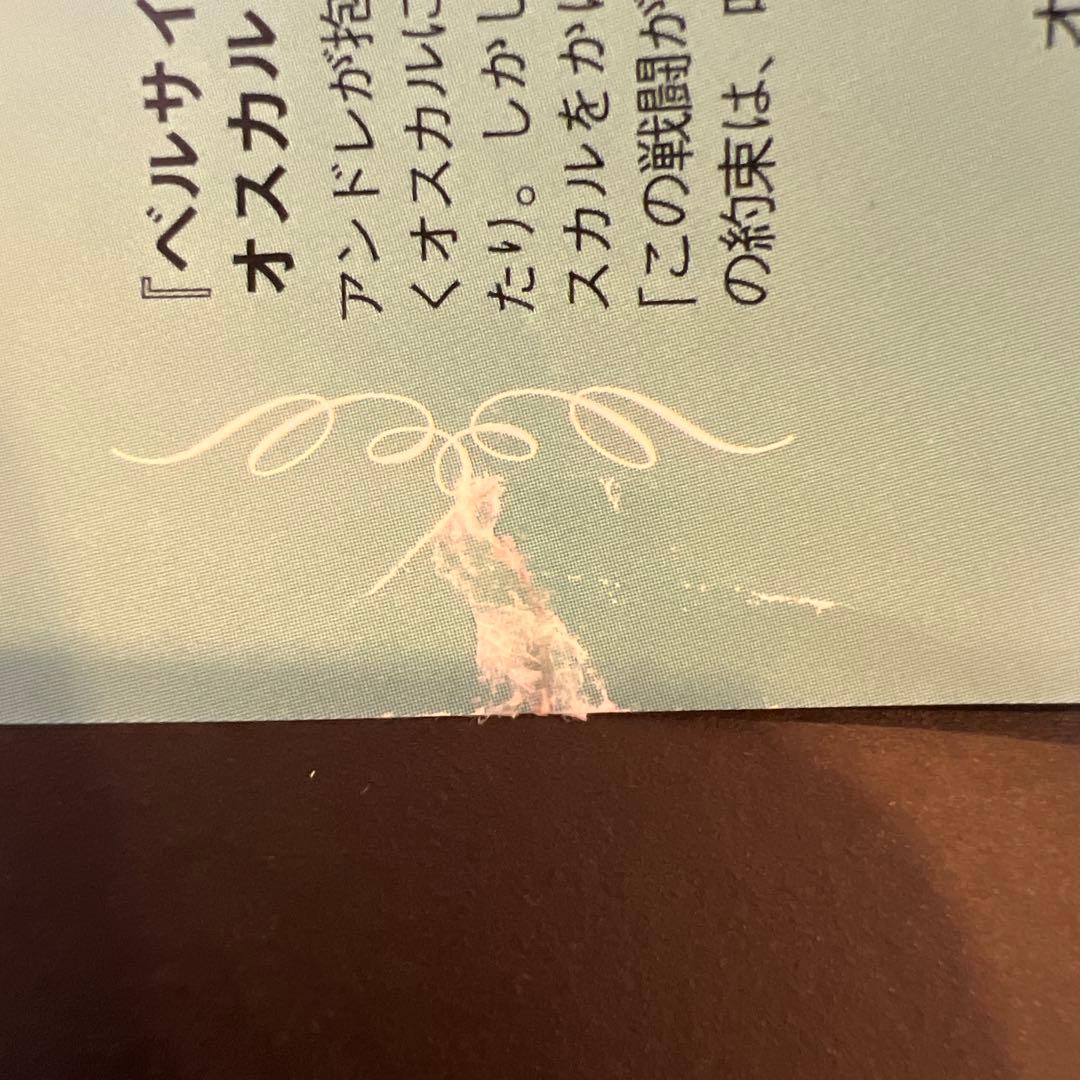 『ベルサイ
オスカル
アンドレが抱
くオスカルに
たり。しかし
スカルをか
「この戦闘が
の約束は、
オ